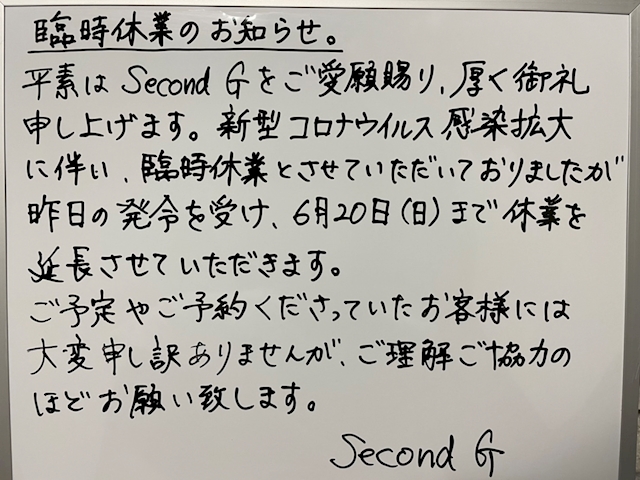 臨時休業のお知らせ。
平素は Second G をご愛願賜り、厚く御礼
申し上げます。新型コロナウイルス感染拡大
に伴い、臨時休業とさせていただいておりましたが
昨日の発令を受け、6月20日(日)まで休業を
延長させていただきます。
ご予定やご予約くださっていたお客様には
大変申し訳ありませんが、ご理解ご協力の
ほどお願い致します。
Second G